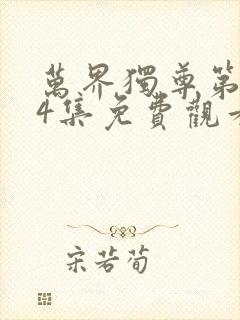 萬界獨尊第
4集免費觀看
宋若荀